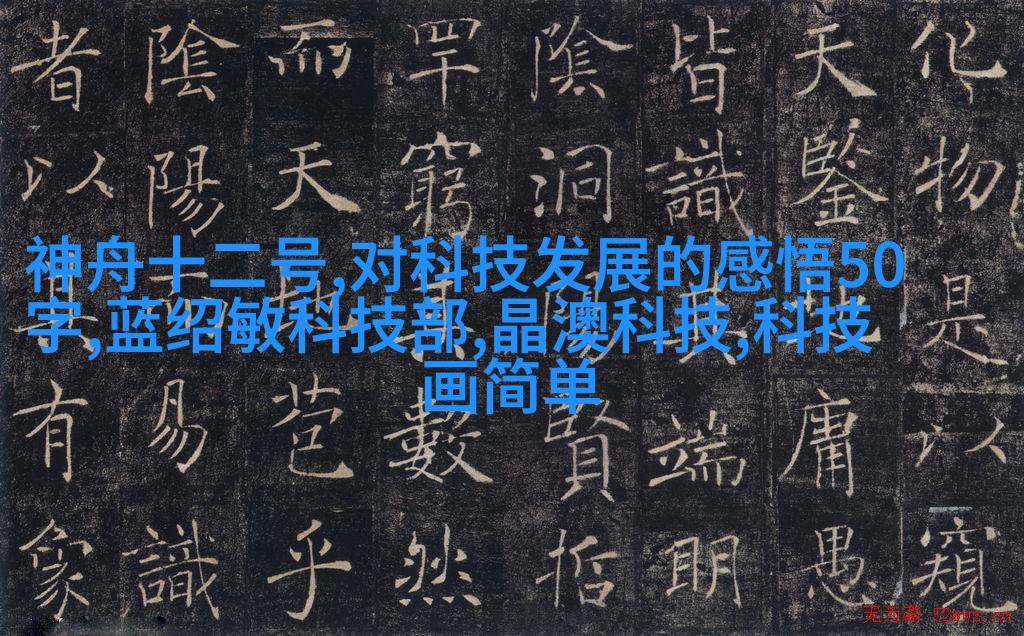 神舟十二号,对科技发展的感悟50
字,蓝绍敏科技部,晶澳科技,科技
画简单
化物是以窺
天鑒庸愚
皆識端明
陰洞賢哲
罕窮數然
而天苞乎
陰陽易識
者以有象
无为斋 52wwz.cn